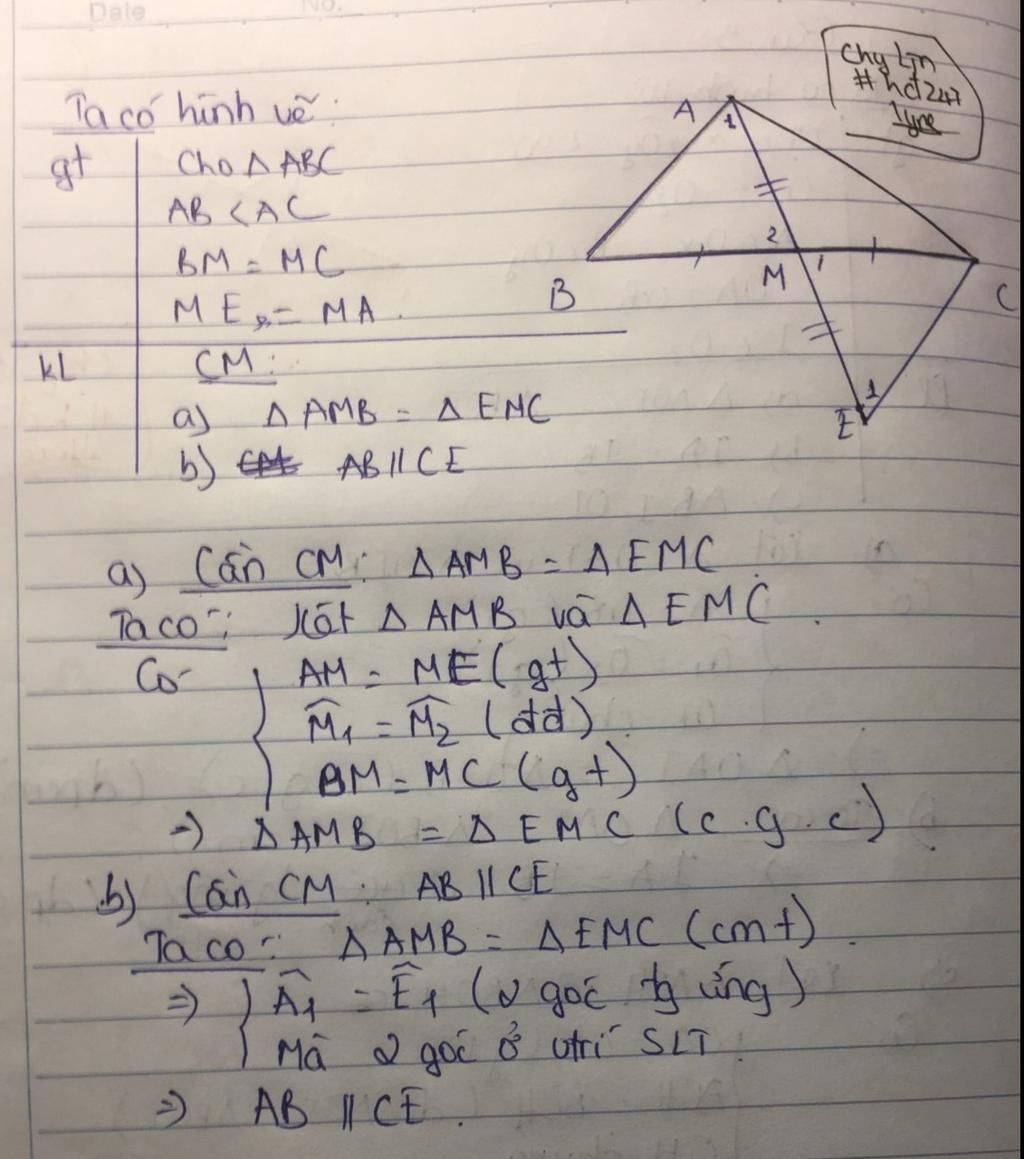 Date No.
Chy Lyn
#hd247
Ta có hình vẽ:
gt
Cho Δ ABC
AB < AC
BM = MC
ME = MA.
kL
CM:
a) Δ AMB = Δ EMC
b) AB // CE
A
1
2
B
M
1
C
1
E
a) Cần CM: Δ AMB = Δ EMC
Ta có: Xét Δ AMB và Δ EMC.
Có AM = ME (gt)
M̂1 = M̂2 (đđ)
BM = MC (gt)
=) Δ AMB = Δ EMC (c.g.c)
b) Cần CM: AB // CE
Ta có: Δ AMB = Δ EMC (cmt).
=) Â1 = Ê1 (2 góc tg ứng)
Mà 2 góc ở vtrí SLT.
=) AB // CE.